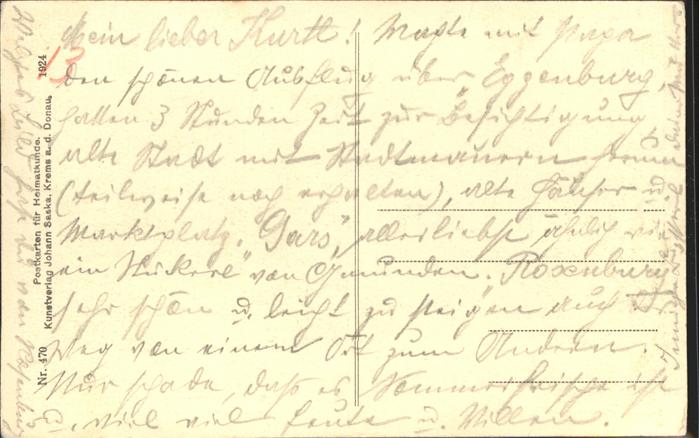 Mein lieber Kurtl! Machte mit Papa
den schönen Ausflug über Eggenburg,
hatten 3 Stunden Zeit zur Besichtigung,
alte Stadt mit Stadtmauern herum
(teilweise noch erhalten), alte Häuser u.
Marktplatz, "Gars", allerliebst ähnlich wie
ein Stückerl" von Gmunden. Rosenburg
sehr schön u. leicht zu steigen auch d.
Weg von einem Ort zum Andern.
Nur schade, daß es Sommerfrische ist
u. viel viel Leute u. Villen.
13
1924
Postkarten für Heimatkunde.
Kunstverlag Johann Saska, Krems a. d. Donau.
Nr. 470